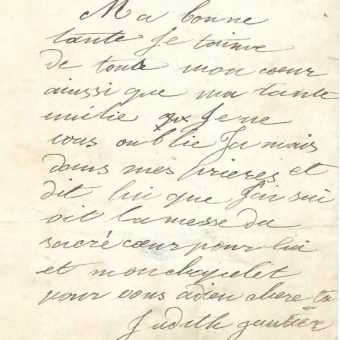 Ma bonne
tante je taime
de tout mon cœur
ainssi que ma tante
émilie je ne
vous oublie Jamais
dans mes prieres et
dit lui que J'ai sui
vit la messe du
sacré cœur pour lui
et mon chapelet
pour vous adieu chere ta
Judith gautier